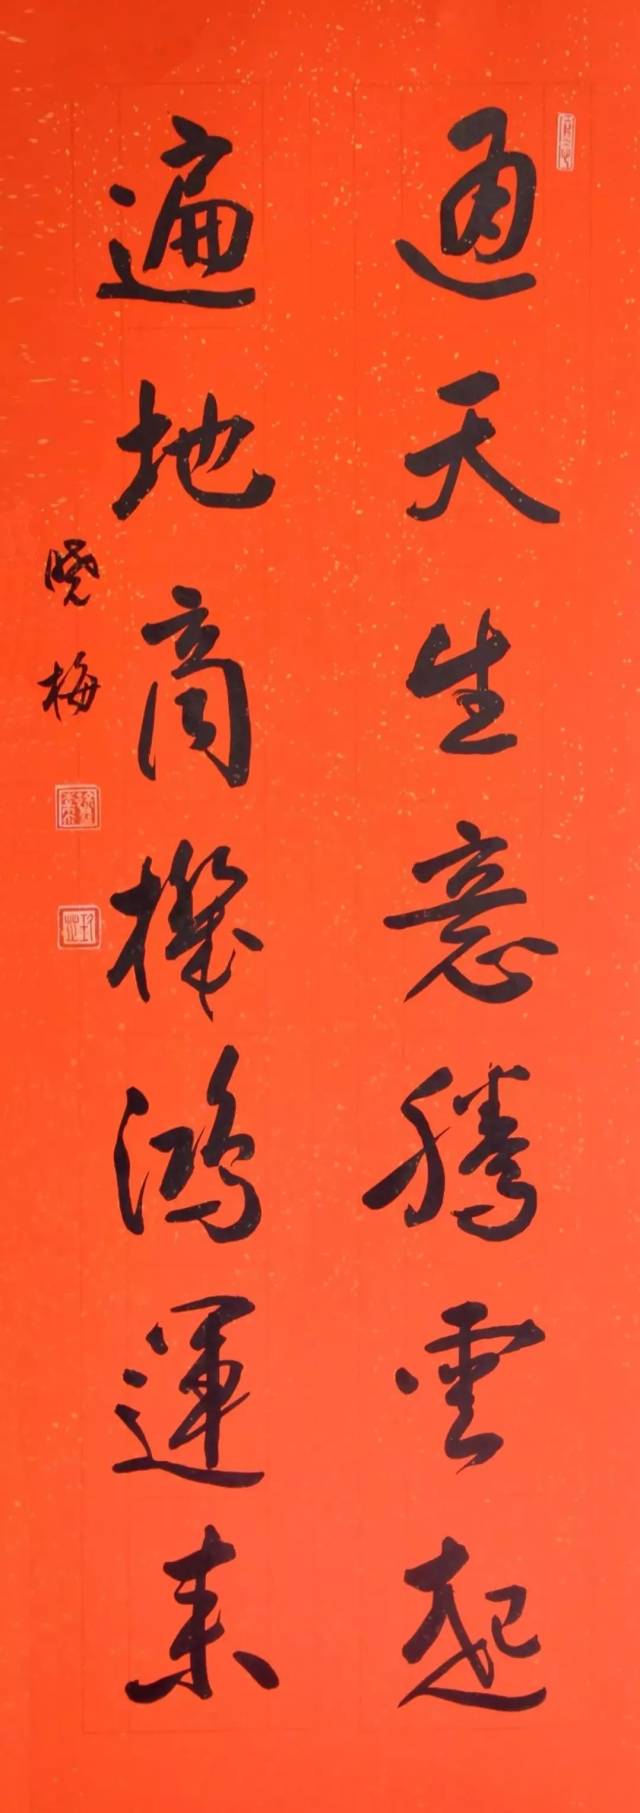 通天生意騰雲起
遍地商機鴻運来
曉梅